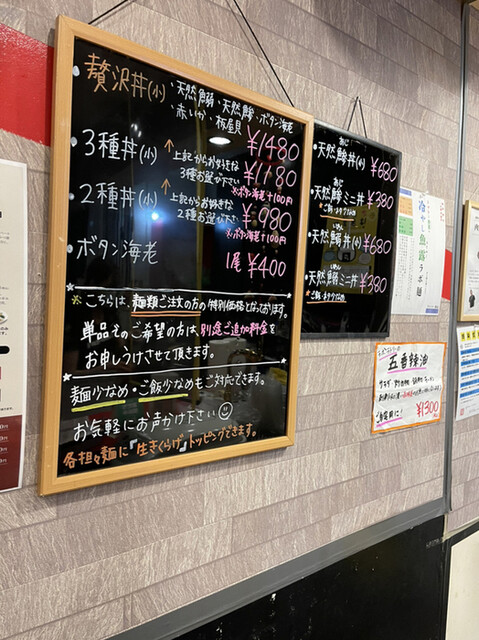 贅沢丼(小)・天然鰯・天然鯵・ボタン海老
・赤いか・板屋貝
¥1480
3種丼(小)
↑上記からお好きな
3種お選び下さい
¥1180
※ボタン海老+100円
2種丼(小)
↑上記からお好きな
2種お選び下さい
¥980
※ボタン海老+100円
・ボタン海老
1尾¥400
※こちらは、麺類ご注文の方の特別価格となっております。
単品そのご希望の方は、別途ご追加料金を
お申しつけさせて頂きます。
麺少なめ・ご飯少なめもご対応できます。
お気軽にお声かけ下さい
各担々麺に『生きくらげ』トッピングできます。
あじ
・天然鯵丼(小)
¥680
あじ
・天然鯵ミニ丼
¥380
いわし
・天然鰯丼(小)
¥680
いわし
・天然鰯ミニ丼
¥380
冷やし魚露ラボ麺
五香辣油
ご自宅用に!
¥1300